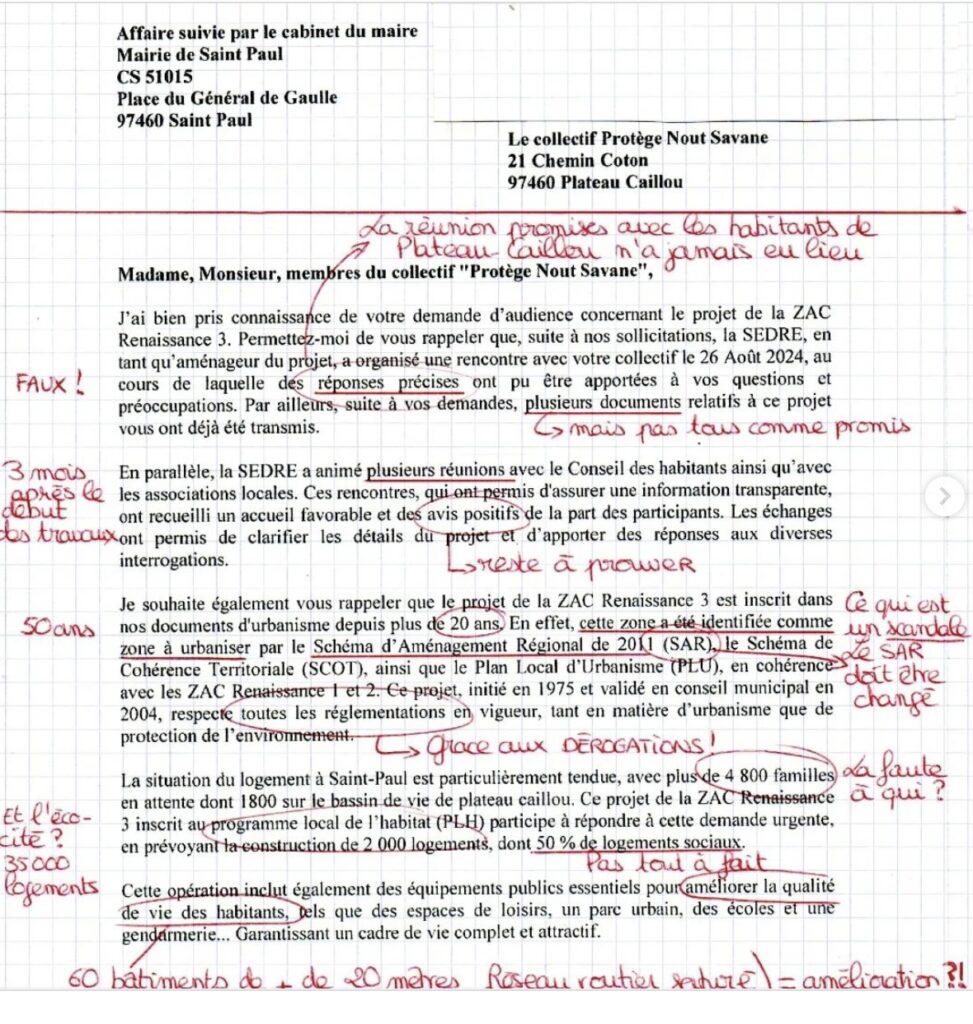 Affaire suivie par le cabinet du maire
Mairie de Saint Paul
CS 51015
Place du Général de Gaulle
97460 Saint Paul
Le collectif Protège Nout Savane
21 Chemin Coton
97460 Plateau Caillou
La réunion promises avec les habitants de
Plateau-Caillou n'a jamais eu lieu
Madame, Monsieur, membres du collectif "Protège Nout Savane",
J'ai bien pris connaissance de votre demande d'audience concernant le projet de la ZAC
Renaissance 3. Permettez-moi de vous rappeler que, suite à nos sollicitations, la SEDRE, en
tant qu'aménageur du projet, a organisé une rencontre avec votre collectif le 26 Août 2024, au
FAUX !
cours de laquelle des réponses précises ont pu être apportées à vos questions et
préoccupations. Par ailleurs, suite à vos demandes, plusieurs documents relatifs à ce projet
vous ont déjà été transmis.
mais pas tous comme promis
3 mois
après le
début
des travaux
En parallèle, la SEDRE a animé plusieurs réunions avec le Conseil des habitants ainsi qu'avec
les associations locales. Ces rencontres, qui ont permis d'assurer une information transparente,
ont recueilli un accueil favorable et des avis positifs de la part des participants. Les échanges
ont permis de clarifier les détails du projet et d'apporter des réponses aux diverses
interrogations.
reste à prouver
Je souhaite également vous rappeler que le projet de la ZAC Renaissance 3 est inscrit dans
50 ans
nos documents d'urbanisme depuis plus de 20 ans. En effet, cette zone a été identifiée comme
zone à urbaniser par le Schéma d'Aménagement Régional de 2011 (SAR), le Schéma de
Cohérence Territoriale (SCOT), ainsi que le Plan Local d'Urbanisme (PLU), en cohérence
avec les ZAC Renaissance 1 et 2. Ce projet, initié en 1975 et validé en conseil municipal en
2004, respecte toutes les réglementations en vigueur, tant en matière d'urbanisme que de
protection de l'environnement.
Ce qui est
un scandale
Le SAR
doit être
changé
Grace aux DÉROGATIONS !
La situation du logement à Saint-Paul est particulièrement tendue, avec plus de 4 800 familles
en attente dont 1800 sur le bassin de vie de plateau caillou. Ce projet de la ZAC Renaissance
3 inscrit au programme local de l'habitat (PLH) participe à répondre à cette demande urgente,
en prévoyant la construction de 2 000 logements, dont 50 % de logements sociaux.
La faute
à qui ?
Et l'éco-
cité ?
35000
logements
Pas tout à fait
Cette opération inclut également des équipements publics essentiels pour améliorer la qualité
de vie des habitants, tels que des espaces de loisirs, un parc urbain, des écoles et une
gendarmerie... Garantissant un cadre de vie complet et attractif.
60 bâtiments de + de 20 mètres Réseau routier saturé = amélioration ?!